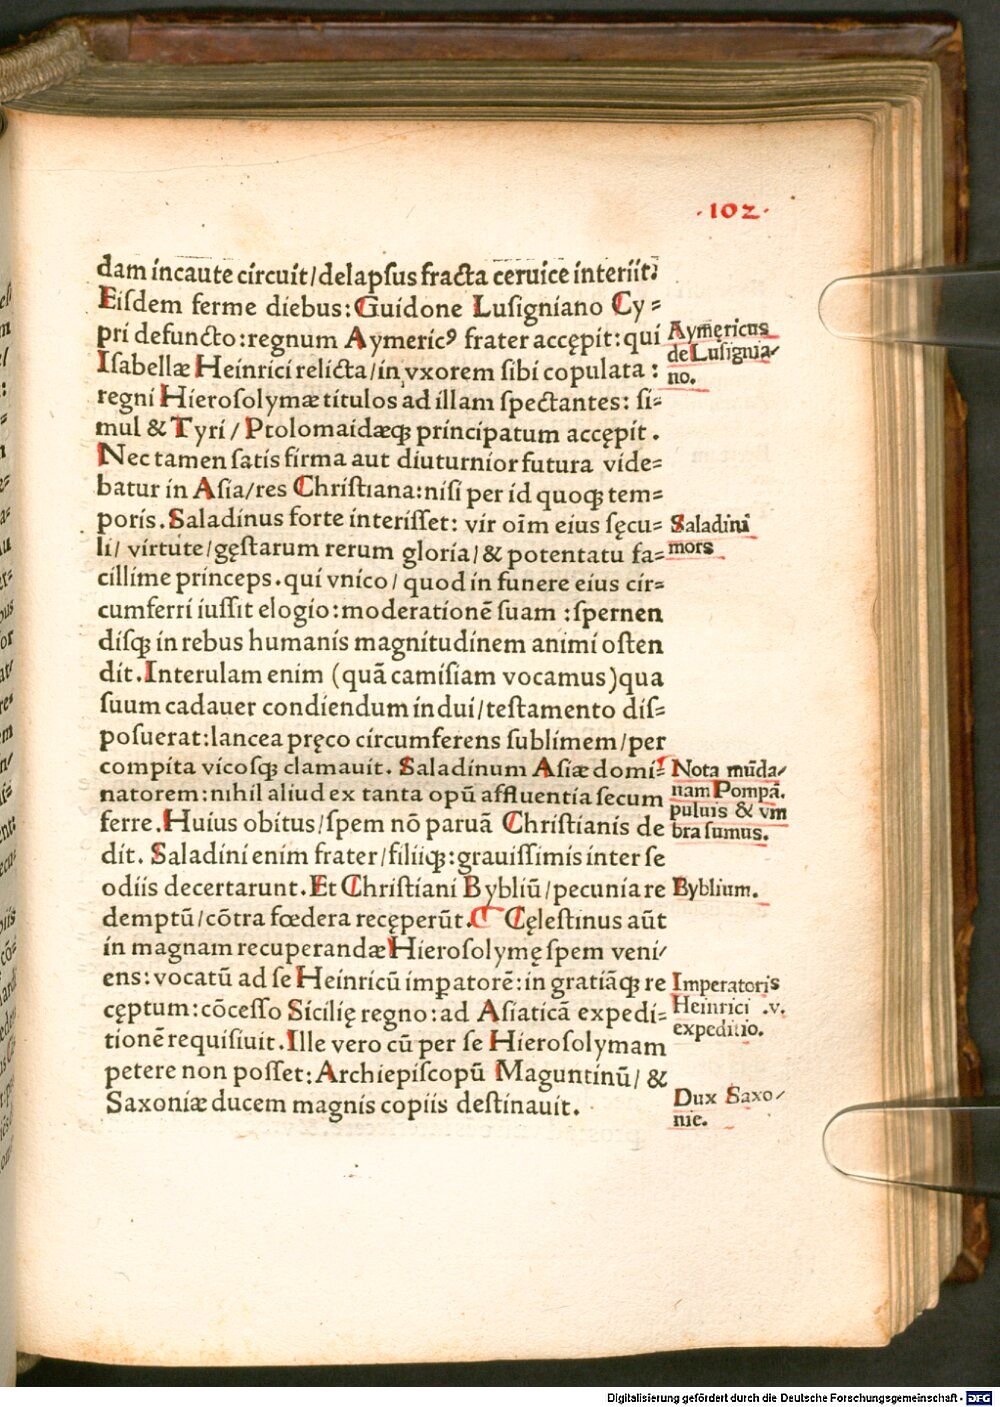 ·102·
dam incaute circuit/delapsus fracta ceruice interiit:
Eisdem ferme diebus: Guidone Lusigniano Cy=
pri defuncto: regnum Aymericꝰ frater accępit: qui
Isabellæ Heinrici relicta/in vxorem sibi copulata :
regni Hierosolymæ titulos ad illam spectantes: si=
mul & Tyri / Ptolomaidæqꝫ principatum accępit .
Nec tamen satis firma aut diuturnior futura vide=
batur in Asia/res Christiana: nisi per id quoqꝫ tem=
poris. Saladinus forte interisset: vir oīm eius sęcu=
li/ virtute/gęstarum rerum gloria/& potentatu fa=
cillime princeps. qui vnico/ quod in funere eius cir=
cumferri iussit elogio: moderationē suam :spernen
disqꝫ in rebus humanis magnitudinem animi osten
dit. Interulam enim (quā camisiam vocamus) qua
suum cadauer condiendum indui/testamento dis=
posuerat: lancea pręco circumferens sublimem/per
compita vicosqꝫ clamauit. Saladinum Asiæ domi=
natorem: nihil aliud ex tanta opū affluentia secum
ferre. Huius obitus/spem nō paruā Christianis de
dit. Saladini enim frater/filiiqꝫ: grauissimis inter se
odiis decertarunt. Et Christiani Bybliū/pecunia re
demptū/cōtra fœdera recęperūt. ¶ Cęlestinus aūt
in magnam recuperandæ Hierosolymę spem veni/
ens: vocatū ad se Heinricū impatorē: in gratiāqꝫ re
cęptum: cōcesso Sicilię regno: ad Asiaticā expedi=
tionē requisiuit. Ille vero cū per se Hierosolymam
petere non posset: Archiepiscopū Maguntinū/ &
Saxoniæ ducem magnis copiis destinauit.
Aymęricus
de Lusignia/
no.
Saladini
mors
Nota mūda/
nam Pompā.
puluis & vm
bra sumus.
Byblium.
Imperatoris
Heinrici .v.
expeditio.
Dux Saxo/
nie.
Digitalisierung gefördert durch die Deutsche Forschungsgemeinschaft - DFG